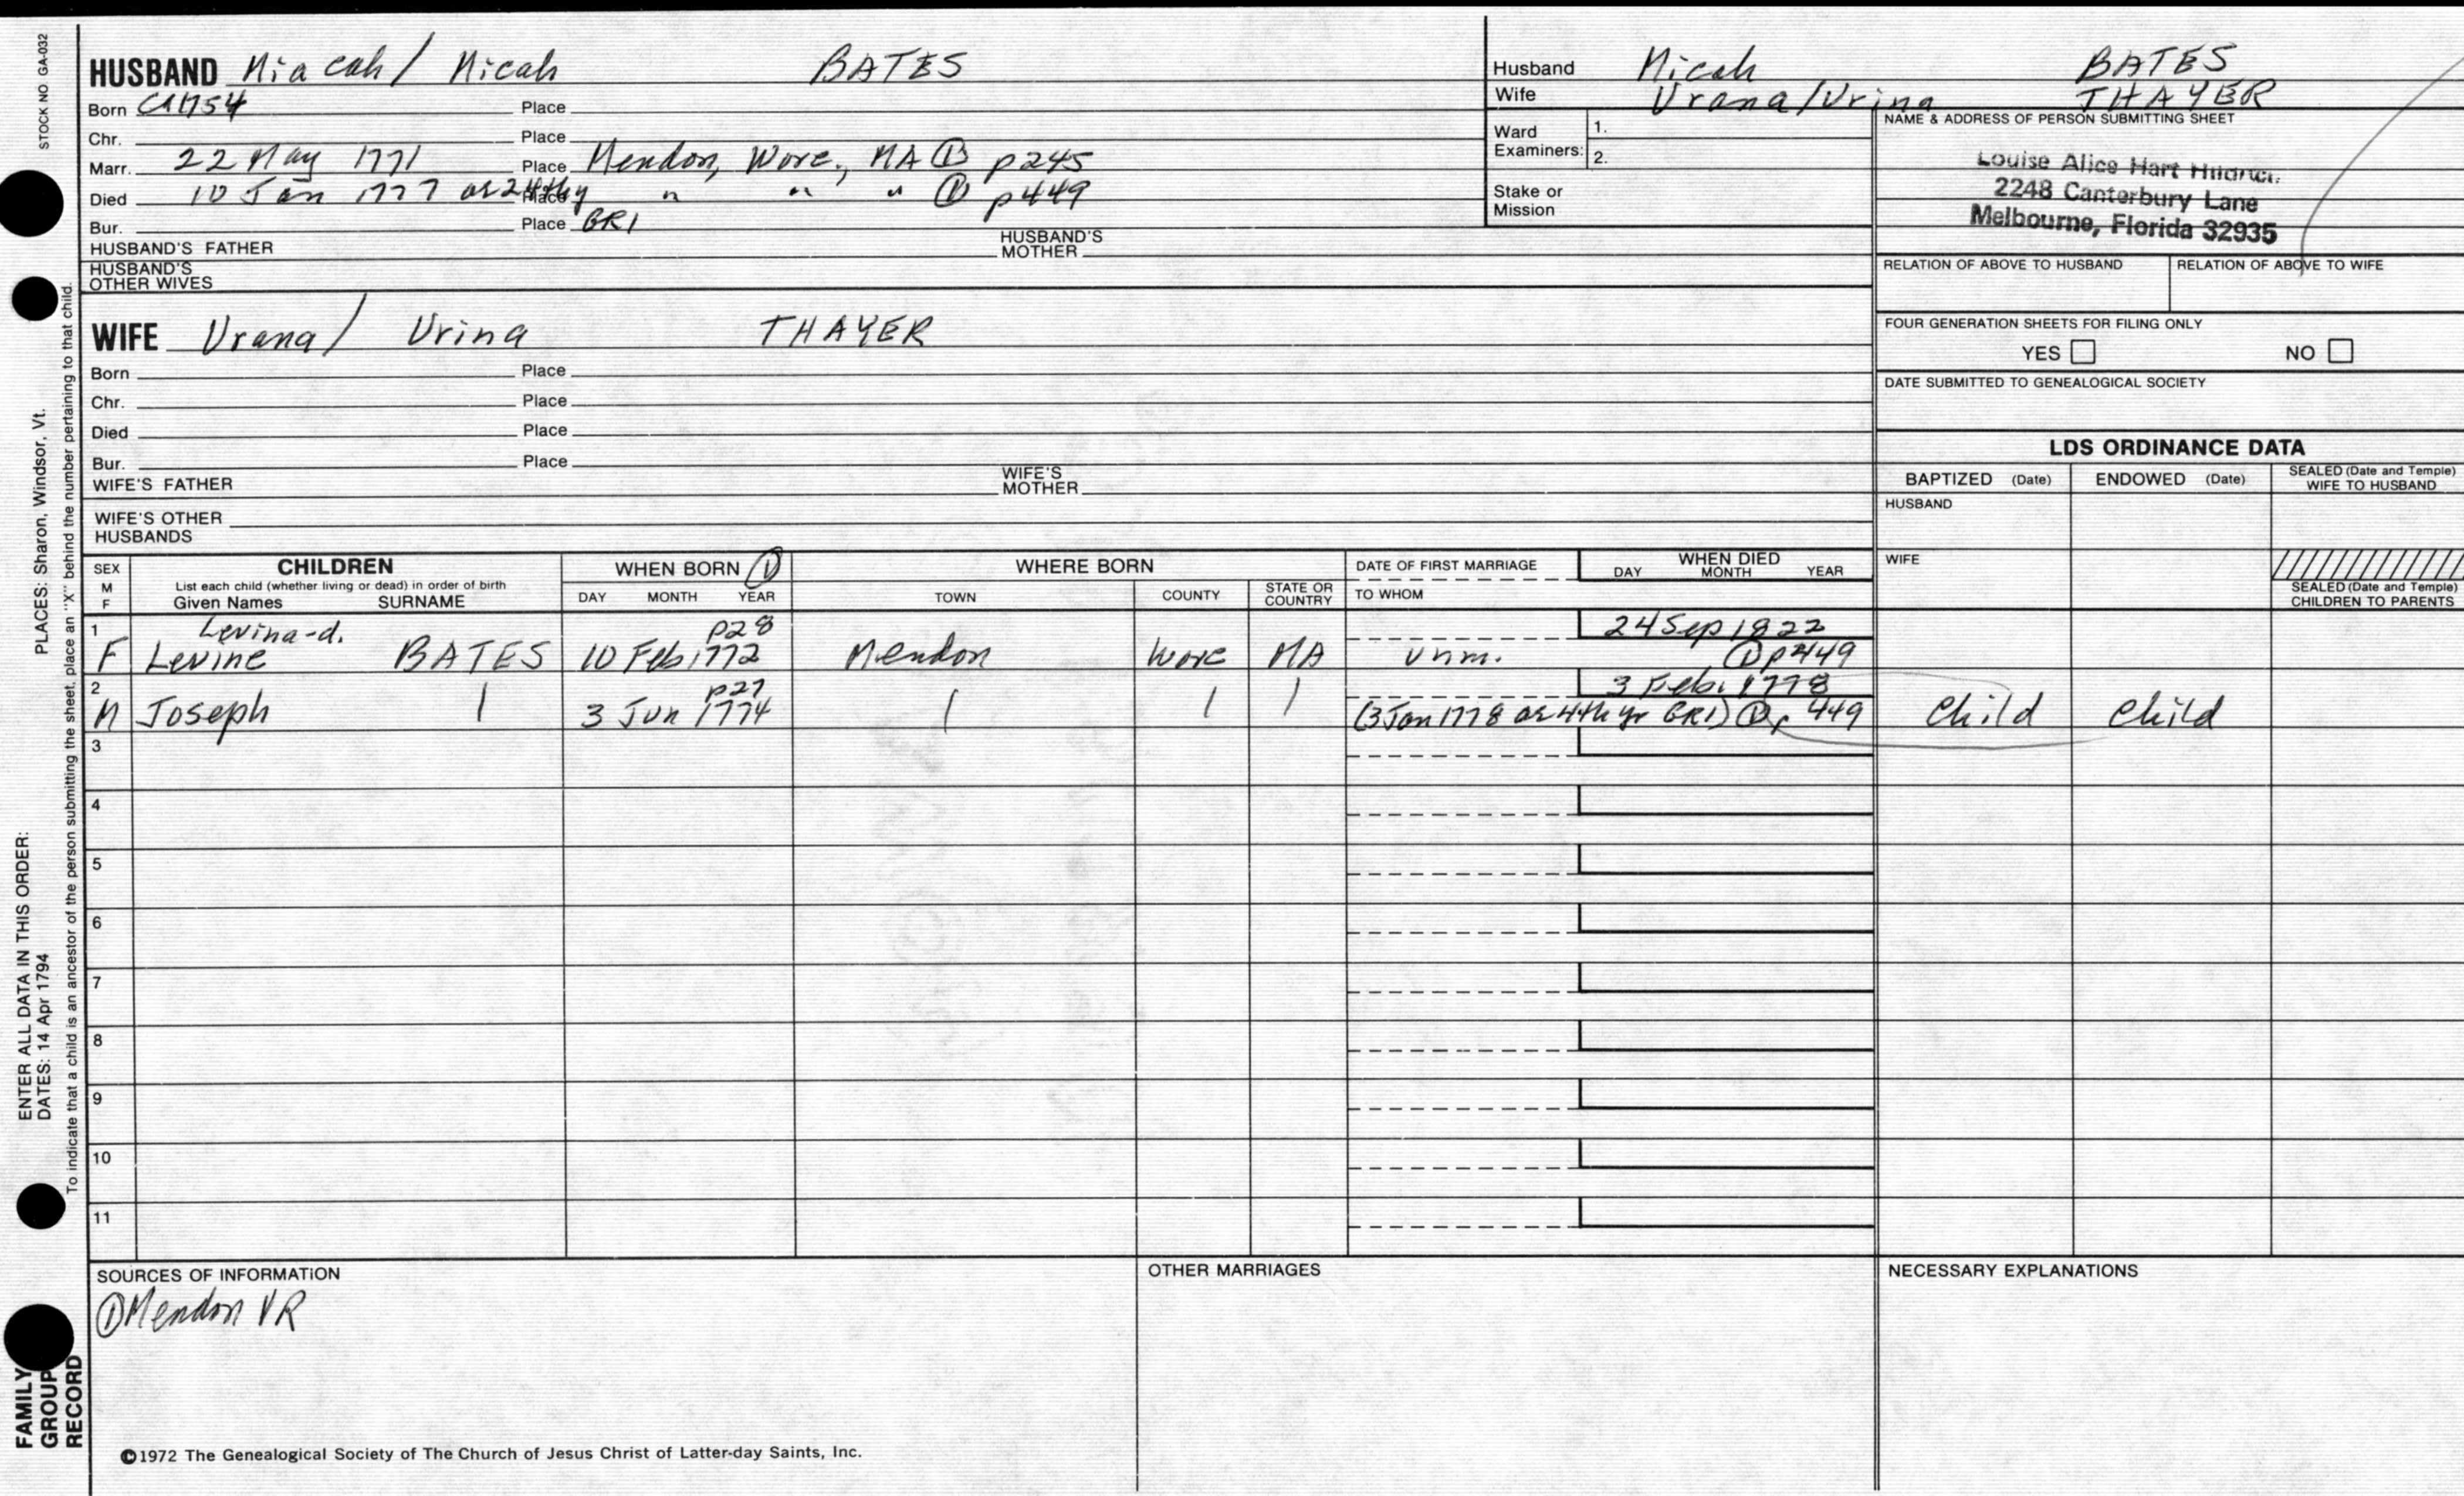 STOCK NO. GA-032
PLACES: Sharon, Windsor, Vt.
ENTER ALL DATA IN THIS ORDER:
DATES: 14 Apr 1794
To indicate that a child is an ancestor of the person submitting the sheet, place an "X" behind the number pertaining to that child.
FAMILY
GROUP
RECORD
HUSBAND Miacah / Micah BATES
Born CA1754 Place
Chr. Place
Marr. 22 May 1771 Place Mendon, Worc, MA ① p245
Died 10 Jan 1777 as 24thy Place " " " ① p449
Bur. Place GR1
HUSBAND'S FATHER HUSBAND'S MOTHER
HUSBAND'S OTHER WIVES
WIFE Urana / Urina THAYER
Born Place
Chr. Place
Died Place
Bur. Place
WIFE'S FATHER WIFE'S MOTHER
WIFE'S OTHER HUSBANDS
Husband Micah BATES
Wife Urana/Urina THAYER
Ward Examiners: 1.
2.
Stake or Mission
NAME & ADDRESS OF PERSON SUBMITTING SHEET
Louise Alice Hart
2248 Canterbury Lane
Melbourne, Florida 32935
RELATION OF ABOVE TO HUSBAND RELATION OF ABOVE TO WIFE
FOUR GENERATION SHEETS FOR FILING ONLY
YES NO
DATE SUBMITTED TO GENEALOGICAL SOCIETY
LDS ORDINANCE DATA
BAPTIZED (Date) ENDOWED (Date) SEALED (Date and Temple) WIFE TO HUSBAND
HUSBAND
WIFE
SEALED (Date and Temple) CHILDREN TO PARENTS
SEX M F
CHILDREN
List each child (whether living or dead) in order of birth
Given Names SURNAME
WHEN BORN ①
DAY MONTH YEAR
WHERE BORN
TOWN COUNTY STATE OR COUNTRY
DATE OF FIRST MARRIAGE
TO WHOM
WHEN DIED
DAY MONTH YEAR
1 Levina-d. p28 24 Sep 1822
F Levine BATES 10 Feb 1772 Mendon Worc MA unm. ① p449
2 p27 3 Feb. 1778
M Joseph | 3 Jun 1774 | | | (3 Jan 1778 as 4th yr GR1) ① p 449 Child Child
3
4
5
6
7
8
9
10
11
SOURCES OF INFORMATION
① Mendon VR
OTHER MARRIAGES
NECESSARY EXPLANATIONS
©1972 The Genealogical Society of The Church of Jesus Christ of Latter-day Saints, Inc.